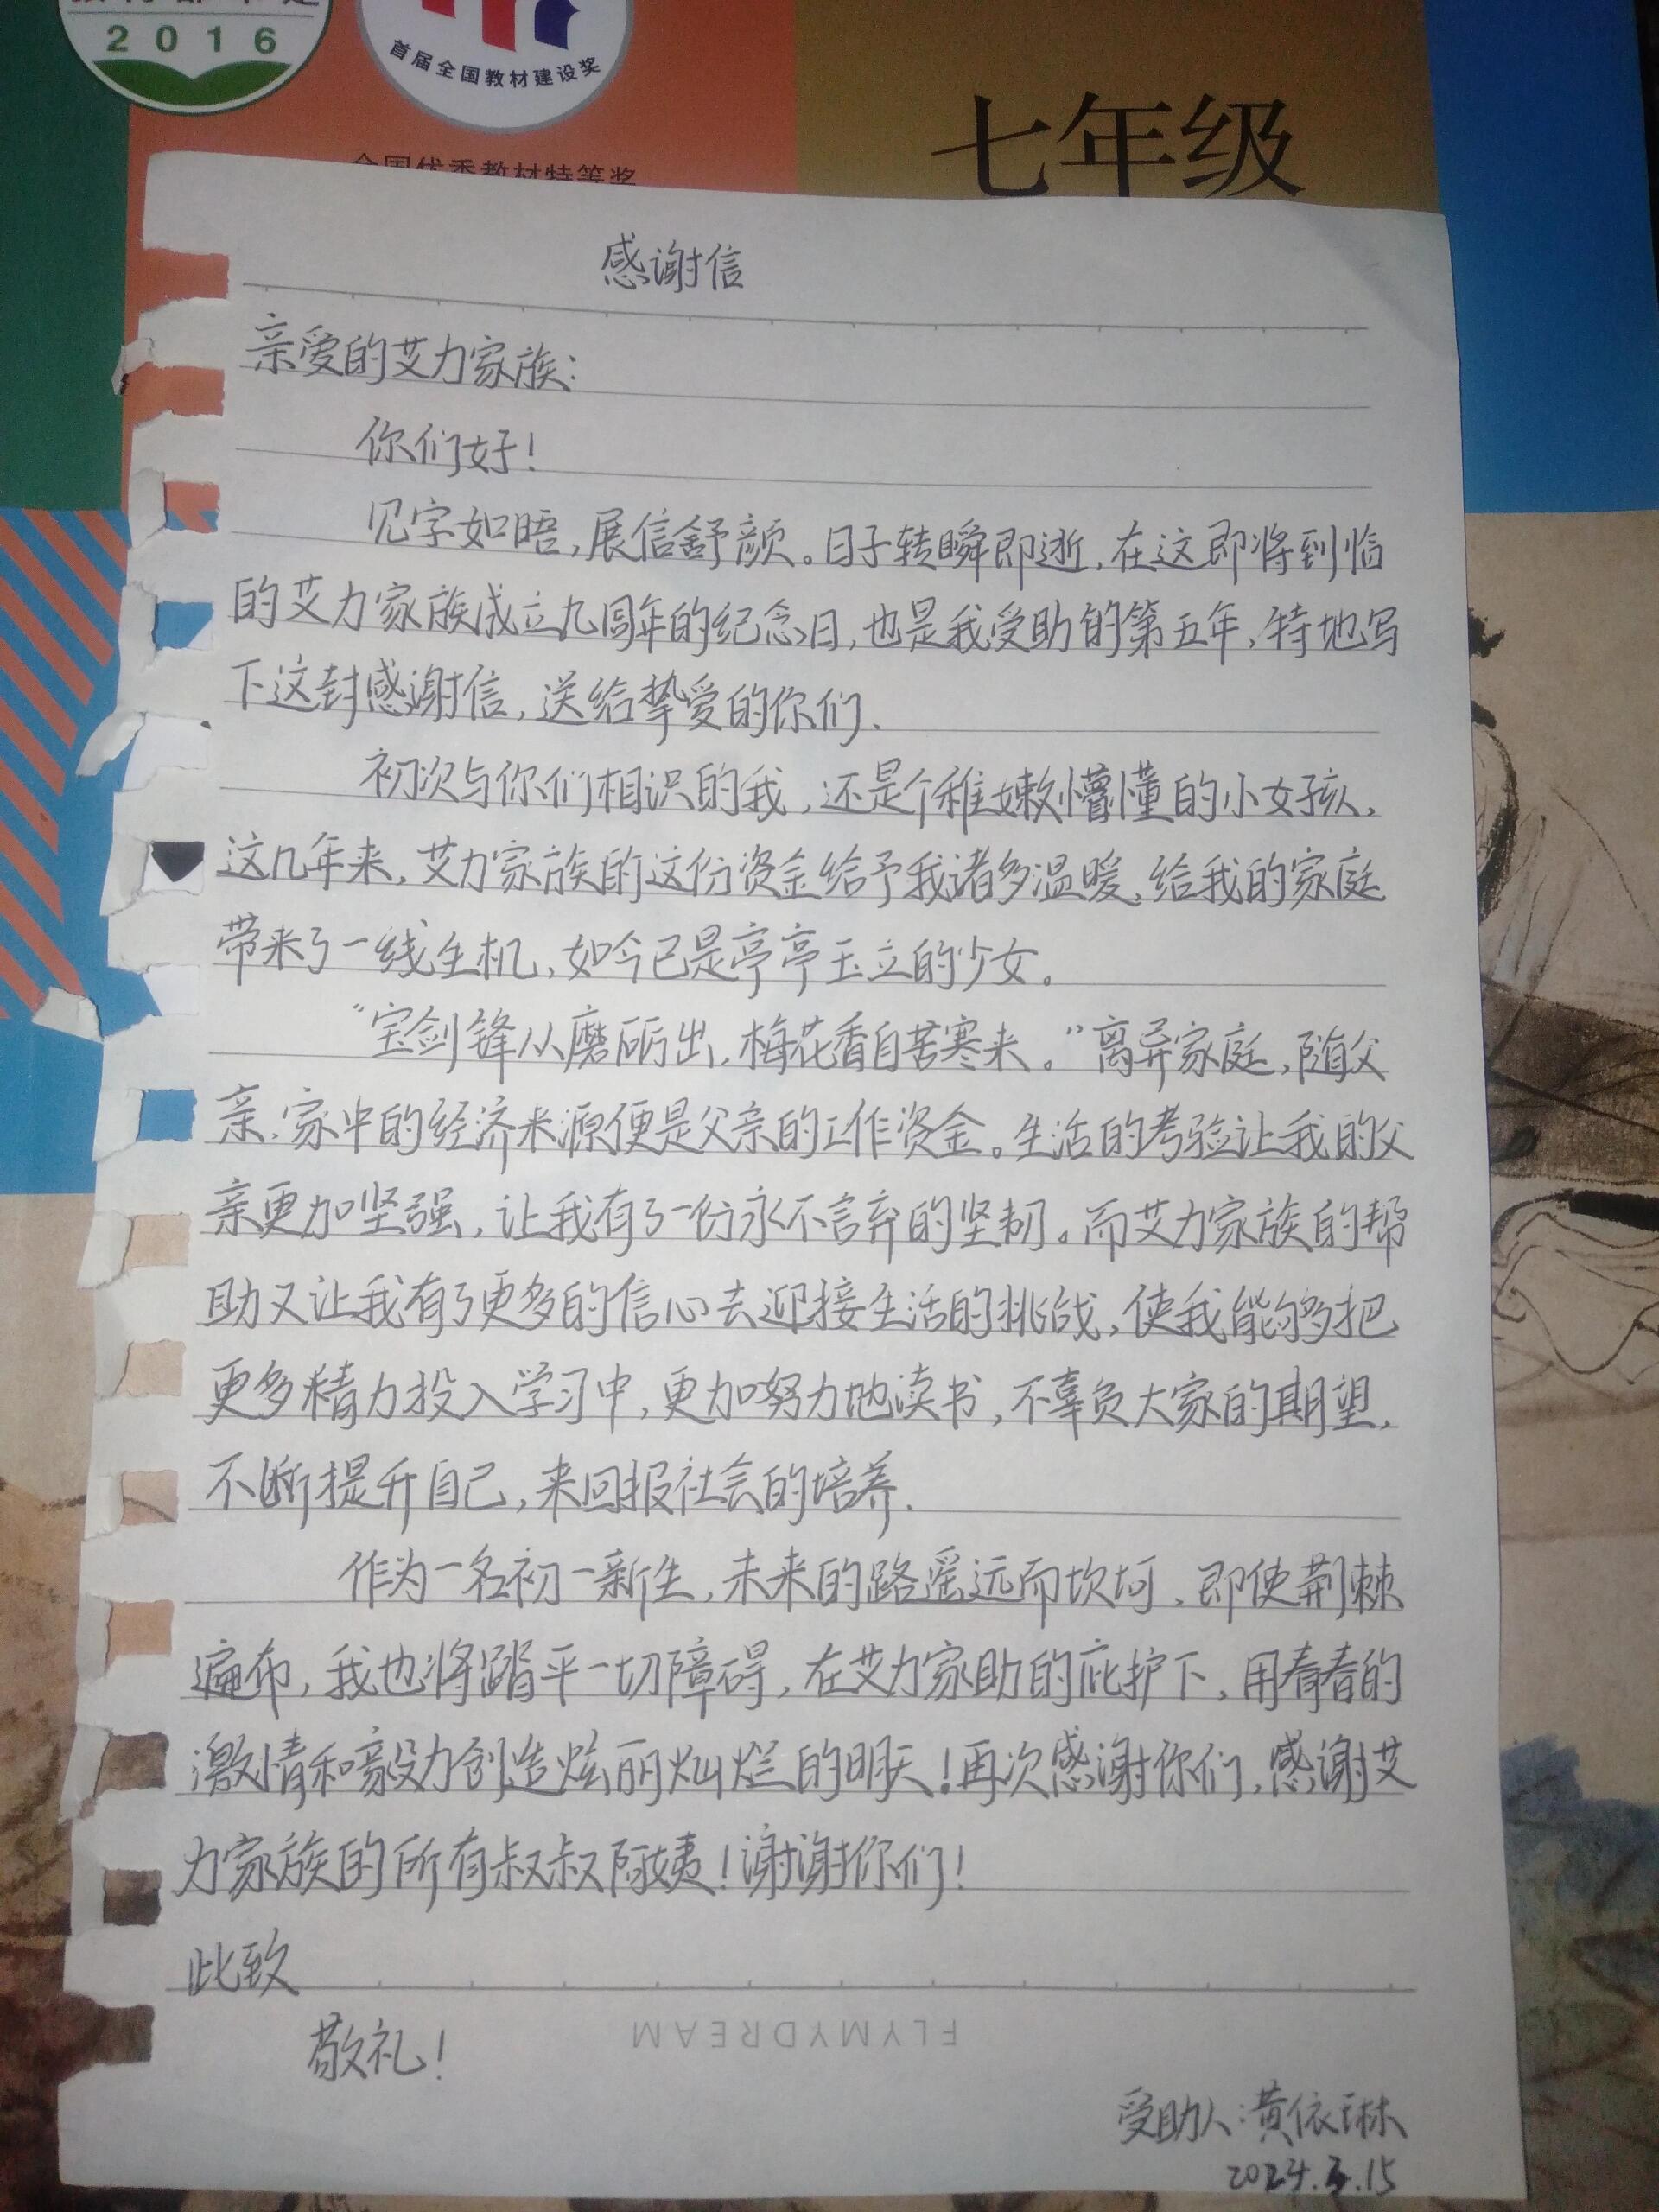 2016
首届全国教材建设奖
全国优秀教材特等奖
七年级
感谢信
亲爱的艾力家族：
你们好！
见字如晤,展信舒颜。日子转瞬即逝,在这即将到临
的艾力家族成立九周年的纪念日,也是我受助的第五年,特地写
下这封感谢信,送给挚爱的你们.
初次与你们相识的我,还是个稚嫩懵懂的小女孩,
这几年来,艾力家族的这份资金给予我诸多温暖,给我的家庭
带来了一线生机,如今已是亭亭玉立的少女。
“宝剑锋从磨砺出,梅花香自苦寒来。”离异家庭,随父
亲.家中的经济来源便是父亲的工作资金。生活的考验让我的父
亲更加坚强,让我有了一份永不言弃的坚韧。而艾力家族的帮
助又让我有了更多的信心去迎接生活的挑战,使我能够把
更多精力投入学习中,更加努力地读书,不辜负大家的期望,
不断提升自己,来回报社会的培养.
作为一名初一新生,未来的路遥远而坎坷,即使荆棘
遍布,我也将踏平一切障碍,在艾力家助的庇护下,用青春的
激情和毅力创造炫丽灿烂的明天!再次感谢你们,感谢艾
力家族的所有叔叔阿姨!谢谢你们!
此致
敬礼!
FLYMYDREAM
受助人:黄依琳